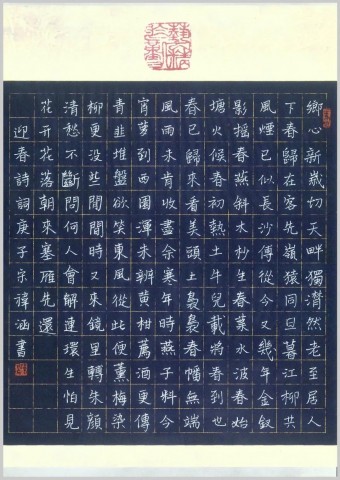 鄉心新歲切天畔獨潸然老至居人
下春歸在客先嶺猿同旦暮江柳共
風煙已似長沙傅從今又幾年金釵
影搖春燕斜木杪生春葉水波春始
塘火候春初熱土牛兒載將春到也
春已歸來看美頭上裊裊春幡無端
風雨未肯收盡余寒年時燕子料今
宵夢到西園渾未辨黃柑薦酒更傳
青韭堆盤卻笑東風從此便薰梅染
柳更没些閒閒時又來鏡里轉朱顏
清愁不斷問何人會解連環生怕見
花开花落朝來塞雁先還
迎春詩詞庚子宗禕涵書